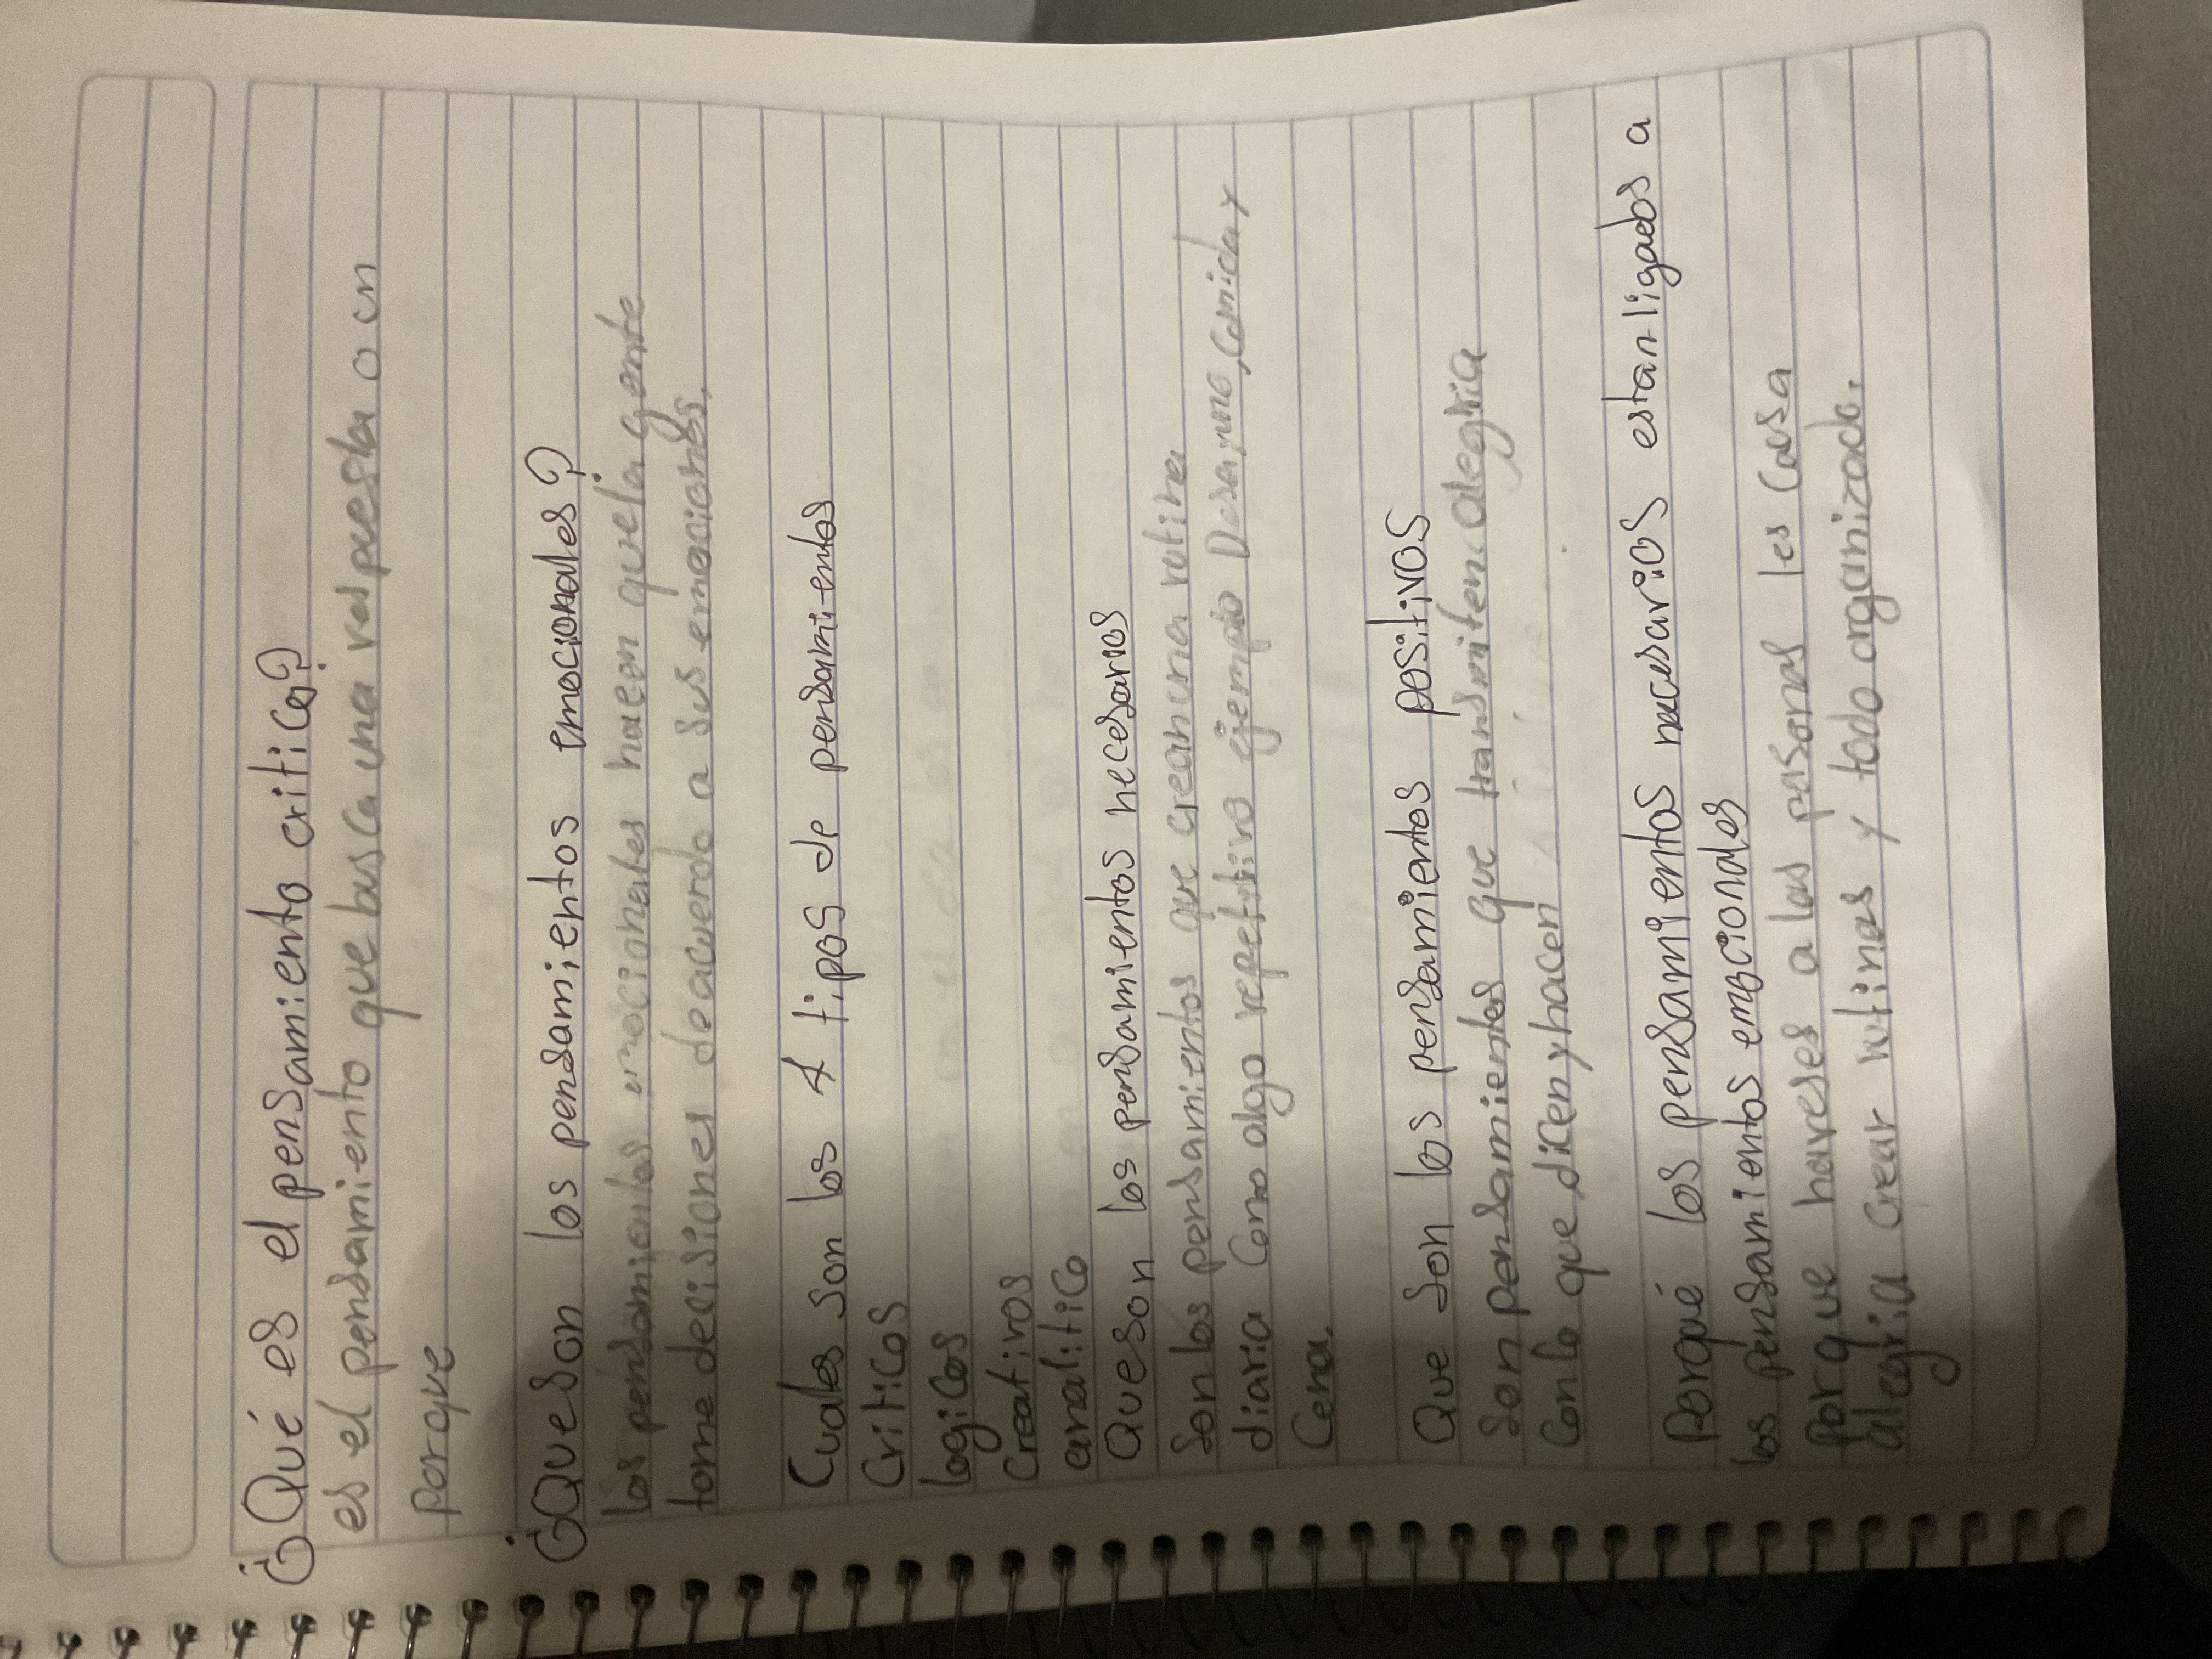 ¿Qué es el pensamiento critico?
es el pensamiento que busca una respuesta o un
porque
¿Que son los pensamientos emocionales?
los pensamientos emocionales hacen que la gente
tome decisiones de acuerdo a sus emociones.
Cuales son los 4 tipos de pensamientos
Criticos
logicos
Creativos
analitico
Que son los pensamientos necesarios
Son los pensamientos que crean una rutina
diaria Como algo repetitivo ejemplo Desayuno, Comida y
Cena.
Que son los pensamientos positivos
Son pensamientos que transmiten alegria
Con lo que dicen y hacen
Porqué los pensamientos necesarios estan ligados a
los pensamientos emocionales
Porque hareses a las personas les Causa
alegria Crear rutinas y todo organizado.